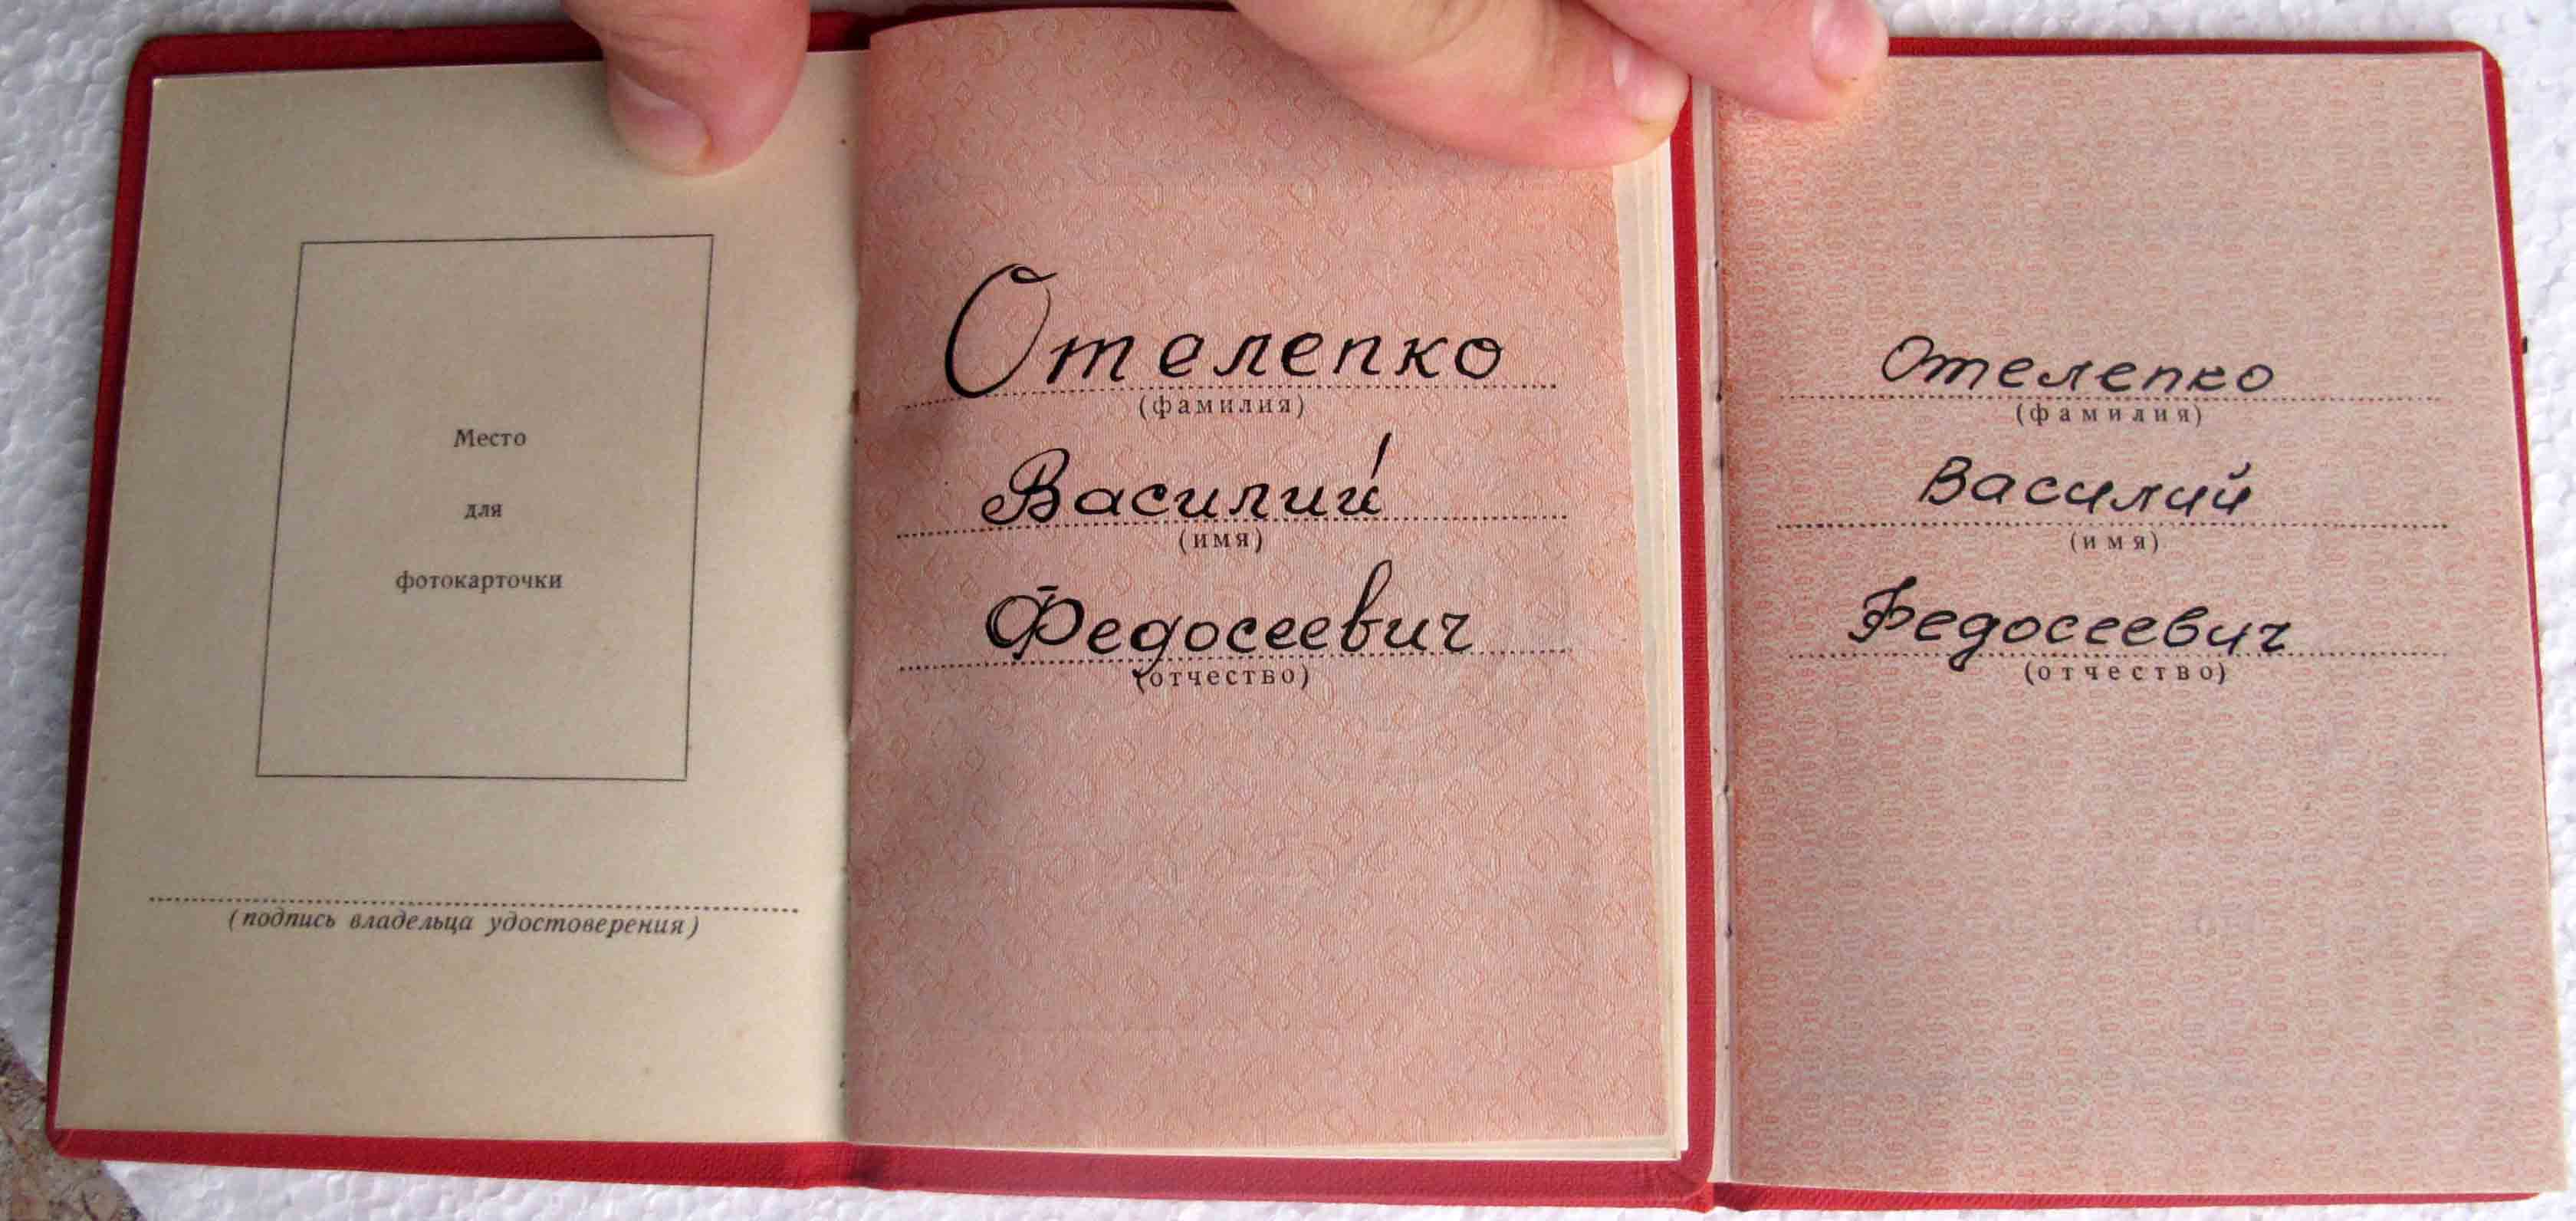 Место
для
фотокарточки
(подпись владельца удостоверения)
Отелепко
(фамилия)
Василий
(имя)
Федосеевич
(отчество)
Отелепко
(фамилия)
Василий
(имя)
Федосеевич
(отчество)